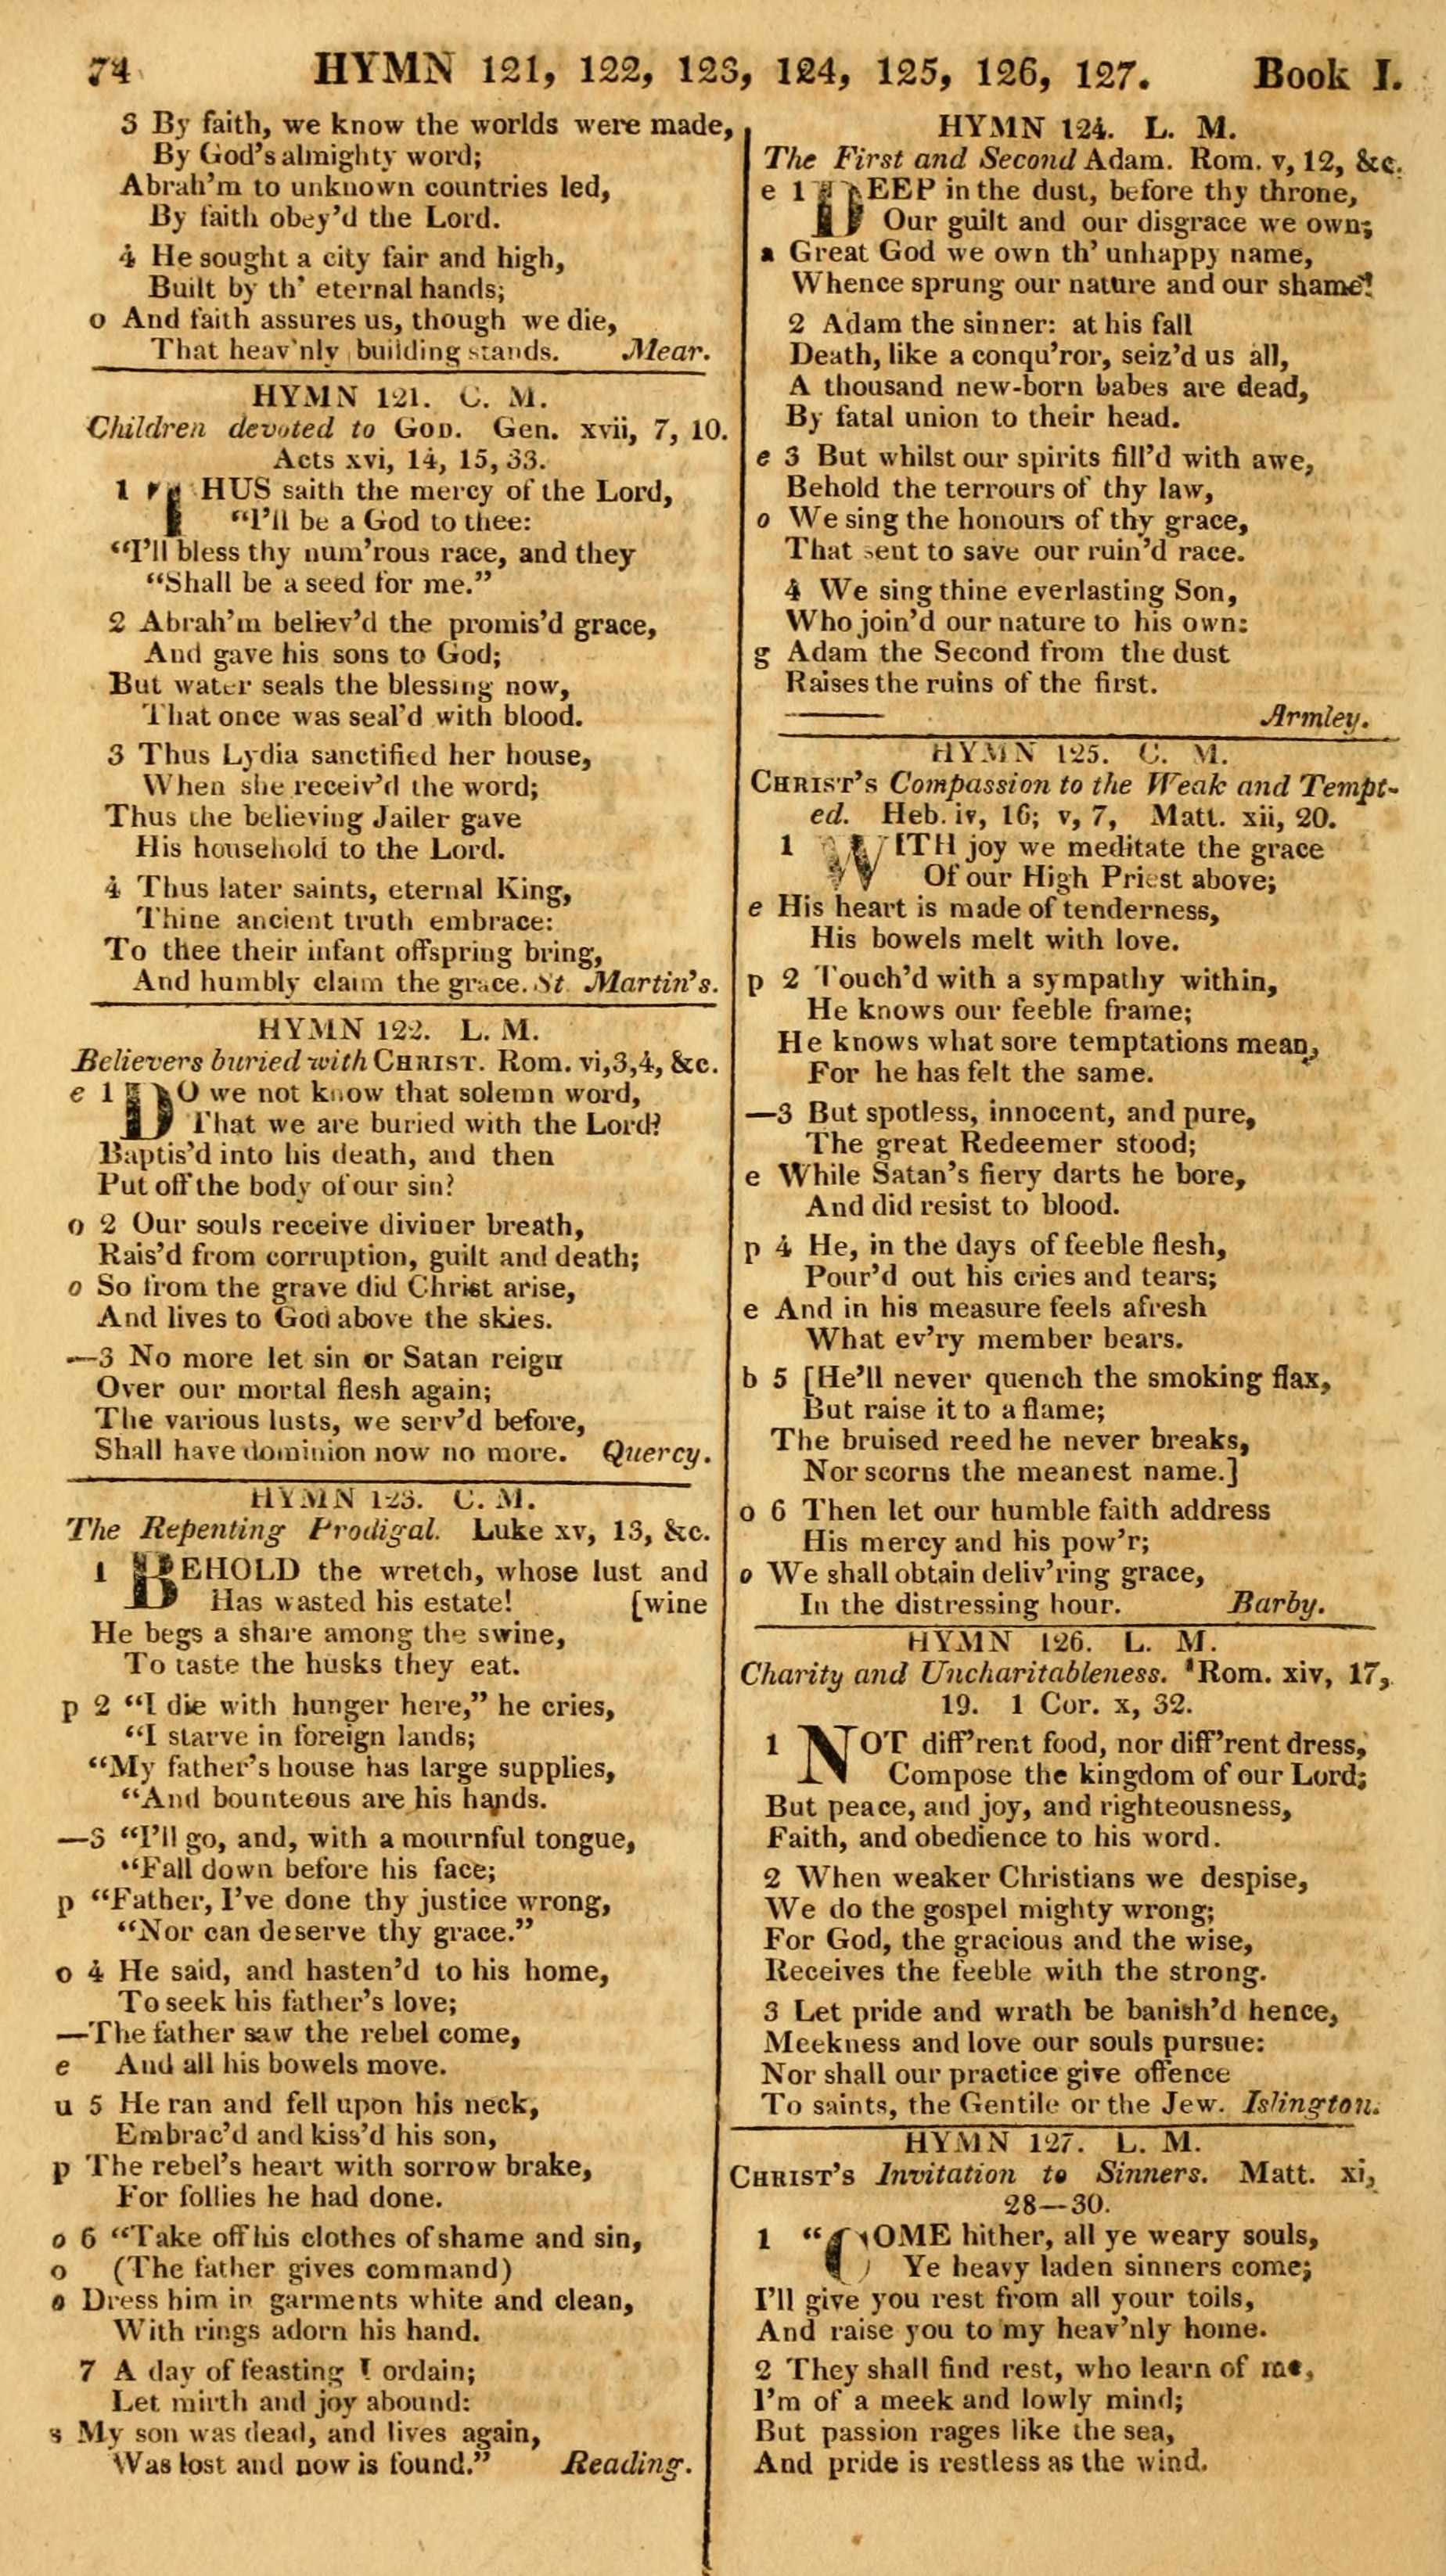 74 HYMN 121, 122, 123, 124, 125, 126, 127. Book I.
3 By faith, we know the worlds were made,
By God's almighty word;
Abrah'm to unknown countries led,
By faith obey'd the Lord.
4 He sought a city fair and high,
Built by th' eternal hands;
o And faith assures us, though we die,
That heav'nly building stands. Mear.
HYMN 121. C. M.
Children devoted to GOD. Gen. xvii, 7, 10.
Acts xvi, 14, 15, 33.
1 THUS saith the mercy of the Lord,
"I'll be a God to thee:
"I'll bless thy num'rous race, and they
"Shall be a seed for me."
2 Abrah'm believ'd the promis'd grace,
And gave his sons to God;
But water seals the blessing now,
That once was seal'd with blood.
3 Thus Lydia sanctified her house,
When she receiv'd the word;
Thus the believing Jailer gave
His household to the Lord.
4 Thus later saints, eternal King,
Thine ancient truth embrace:
To thee their infant offspring bring,
And humbly claim the grace. St Martin's.
HYMN 122. L. M.
Believers buried with CHRIST. Rom. vi,3,4, &c.
e 1 DO we not know that solemn word,
That we are buried with the Lord?
Baptis'd into his death, and then
Put off the body of our sin?
o 2 Our souls receive diviner breath,
Rais'd from corruption, guilt and death;
o So from the grave did Christ arise,
And lives to God above the skies.
—3 No more let sin or Satan reign
Over our mortal flesh again;
The various lusts, we serv'd before,
Shall have dominion now no more. Quercy.
HYMN 123. C. M.
The Repenting Prodigal. Luke xv, 13, &c.
1 BEHOLD the wretch, whose lust and
Has wasted his estate! [wine
He begs a share among the swine,
To taste the husks they eat.
p 2 "I die with hunger here," he cries,
"I starve in foreign lands;
"My father's house has large supplies,
"And bounteous are his hands.
—3 "I'll go, and, with a mournful tongue,
"Fall down before his face;
p "Father, I've done thy justice wrong,
"Nor can deserve thy grace."
o 4 He said, and hasten'd to his home,
To seek his father's love;
—The father saw the rebel come,
e And all his bowels move.
u 5 He ran and fell upon his neck,
Embrac'd and kiss'd his son,
p The rebel's heart with sorrow brake,
For follies he had done.
o 6 "Take off his clothes of shame and sin,
o (The father gives command)
o Dress him in garments white and clean,
With rings adorn his hand.
7 A day of feasting I ordain;
Let mirth and joy abound:
s My son was dead, and lives again,
Was lost and now is found." Reading.
HYMN 124. L. M.
The First and Second Adam. Rom. v, 12, &c.
e 1 DEEP in the dust, before thy throne,
Our guilt and our disgrace we own;
a Great God we own th' unhappy name,
Whence sprung our nature and our shame!
2 Adam the sinner: at his fall
Death, like a conqu'ror, seiz'd us all,
A thousand new-born babes are dead,
By fatal union to their head.
e 3 But whilst our spirits fill'd with awe,
Behold the terrours of thy law,
o We sing the honours of thy grace,
That sent to save our ruin'd race.
4 We sing thine everlasting Son,
Who join'd our nature to his own:
g Adam the Second from the dust
Raises the ruins of the first.
Armley.
HYMN 125. C. M.
CHRIST'S Compassion to the Weak and Tempt-
ed. Heb. iv, 16; v, 7, Matt. xii, 20.
1 WITH joy we meditate the grace
Of our High Priest above;
e His heart is made of tenderness,
His bowels melt with love.
p 2 Touch'd with a sympathy within,
He knows our feeble frame;
He knows what sore temptations mean,
For he has felt the same.
—3 But spotless, innocent, and pure,
The great Redeemer stood;
e While Satan's fiery darts he bore,
And did resist to blood.
p 4 He, in the days of feeble flesh,
Pour'd out his cries and tears;
e And in his measure feels afresh
What ev'ry member bears.
b 5 [He'll never quench the smoking flax,
But raise it to a flame;
The bruised reed he never breaks,
Nor scorns the meanest name.]
o 6 Then let our humble faith address
His mercy and his pow'r;
o We shall obtain deliv'ring grace,
In the distressing hour. Barby.
HYMN 126. L. M.
Charity and Uncharitableness. Rom. xiv, 17,
19. 1 Cor. x, 32.
1 NOT diff'rent food, nor diff'rent dress,
Compose the kingdom of our Lord;
But peace, and joy, and righteousness,
Faith, and obedience to his word.
2 When weaker Christians we despise,
We do the gospel mighty wrong;
For God, the gracious and the wise,
Receives the feeble with the strong.
3 Let pride and wrath be banish'd hence,
Meekness and love our souls pursue:
Nor shall our practice give offence
To saints, the Gentile or the Jew. Islington.
HYMN 127. L. M.
CHRIST'S Invitation to Sinners. Matt. xi,
28—30.
1 "COME hither, all ye weary souls,
Ye heavy laden sinners come;
I'll give you rest from all your toils,
And raise you to my heav'nly home.
2 They shall find rest, who learn of me,
I'm of a meek and lowly mind;
But passion rages like the sea,
And pride is restless as the wind.